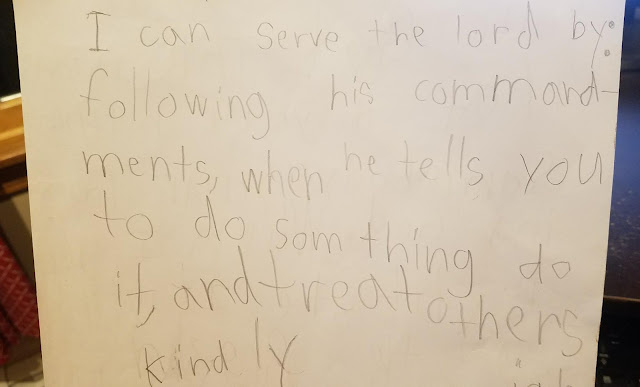 I can serve the lord by:
following his command-
ments, when he tells you
to do som thing do
it, and treat others
kindly